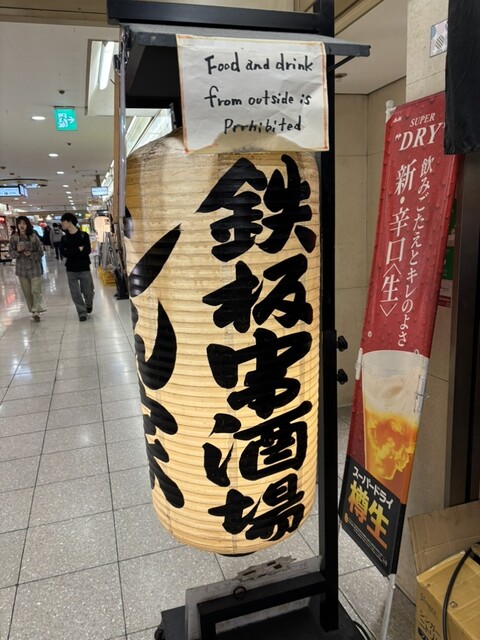 Food and drink
from outside is
Prrhibited
鉄板 酒場
Asahi
SUPER
"DRY"
飲みごたえとキレのよさ
新・辛口〈生〉
スーパードライ
樽生